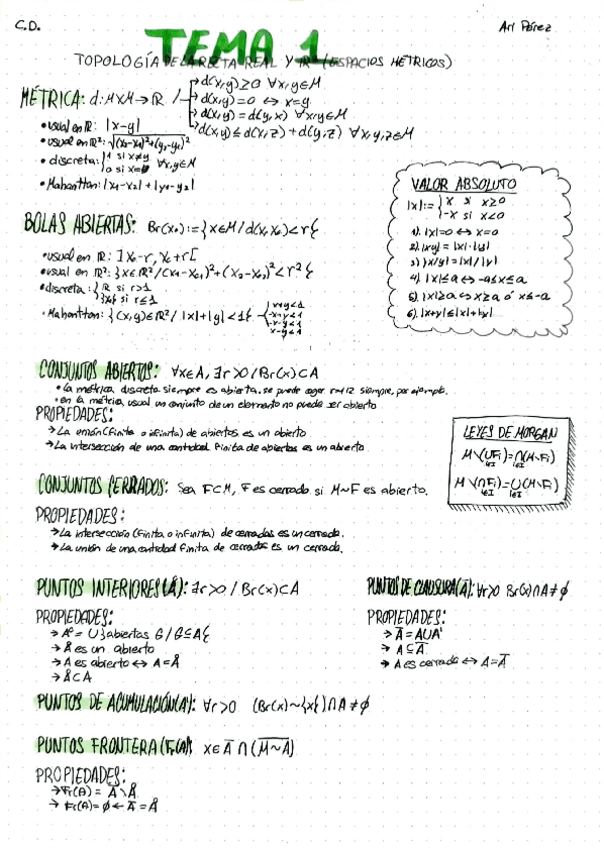 C.D.
Ari Pérez
TEMA 1
TOPOLOGÍA DE LA RECTA REAL Y ℝⁿ (ESPACIOS MÉTRICOS)
MÉTRICA: d: M×M → ℝ /
→ d(x,y) ≥ 0 ∀x,y∈M
→ d(x,y) = 0 ↔ x=y
→ d(x,y) = d(y,x) ∀x,y∈M
→ d(x,y) ≤ d(x,z) + d(y,z) ∀x,y,z∈M
• usual en ℝ: |x-y|
• usual en ℝ²: √(x₂-x₁)²+(y₂-y₁)²
• discreta: {1 si x≠y
0 si x=y ∀x,y∈M
• Mahanttan: |x₁-x₂| + |y₁-y₂|
VALOR ABSOLUTO
|x| := { x si x≥0
-x si x<0
1). |x|=0 ↔ x=0
2). |xy| = |x|·|y|
3). |x/y| = |x|/|y|
4). |x|≤a ↔ -a≤x≤a
5). |x|≥a ↔ x≥a ó x≤-a
6). |x+y|≤|x|+|y|
BOLAS ABIERTAS: Br(x₀) := {x∈M / d(x,x₀)<r}
• usual en ℝ: ]x₀-r, x₀+r[
• usual en ℝ²: {x∈ℝ² / (x₁-x₀₁)²+(x₂-x₀₂)²<r²}
• discreta: { ℝ si r>1
{x₀} si r≤1
• Mahanttan: {(x,y)∈ℝ² / |x|+|y|<1}
x+y<1
-x+y<1
-x-y<1
x-y<1
CONJUNTOS ABIERTOS: ∀x∈A, ∃r>0 / Br(x)⊂A
• la métrica discreta siempre es abierta. se puede coger r=1/2 siempre, por ejemplo.
• en la métrica usual un conjunto de un elemento no puede ser abierto
PROPIEDADES:
→ La unión (finita o infinita) de abiertos es un abierto
→ La intersección de una cantidad finita de abiertos es un abierto
LEYES DE MORGAN
M\(∪Fi)=∩(M\Fi)
i∈I i∈I
M\(∩Fi)=∪(M\Fi)
i∈I i∈I
CONJUNTOS CERRADOS: Sea F⊂M, F es cerrado si M~F es abierto.
PROPIEDADES:
→ La intersección (finita o infinita) de cerrados es un cerrado.
→ La unión de una cantidad finita de cerrados es un cerrado.
PUNTOS INTERIORES (Å): ∃r>0 / Br(x)⊂A
PROPIEDADES:
→ A° = ∪{abiertos G / G⊆A}
→ Å es un abierto
→ A es abierto ↔ A=Å
→ Å⊂A
PUNTOS DE CLAUSURA (A̅): ∀r>0 Br(x)∩A≠∅
PROPIEDADES:
→ A̅ = A∪A'
→ A⊆A̅
→ A es cerrado ↔ A=A̅
PUNTOS DE ACUMULACIÓN (A'): ∀r>0 (Br(x)~{x})∩A≠∅
PUNTOS FRONTERA (Fr(A)): x∈A̅ ∩ (M~A)
PROPIEDADES:
→ Fr(A) = A̅\Å
→ Fr(A)=∅ ← A̅=Å